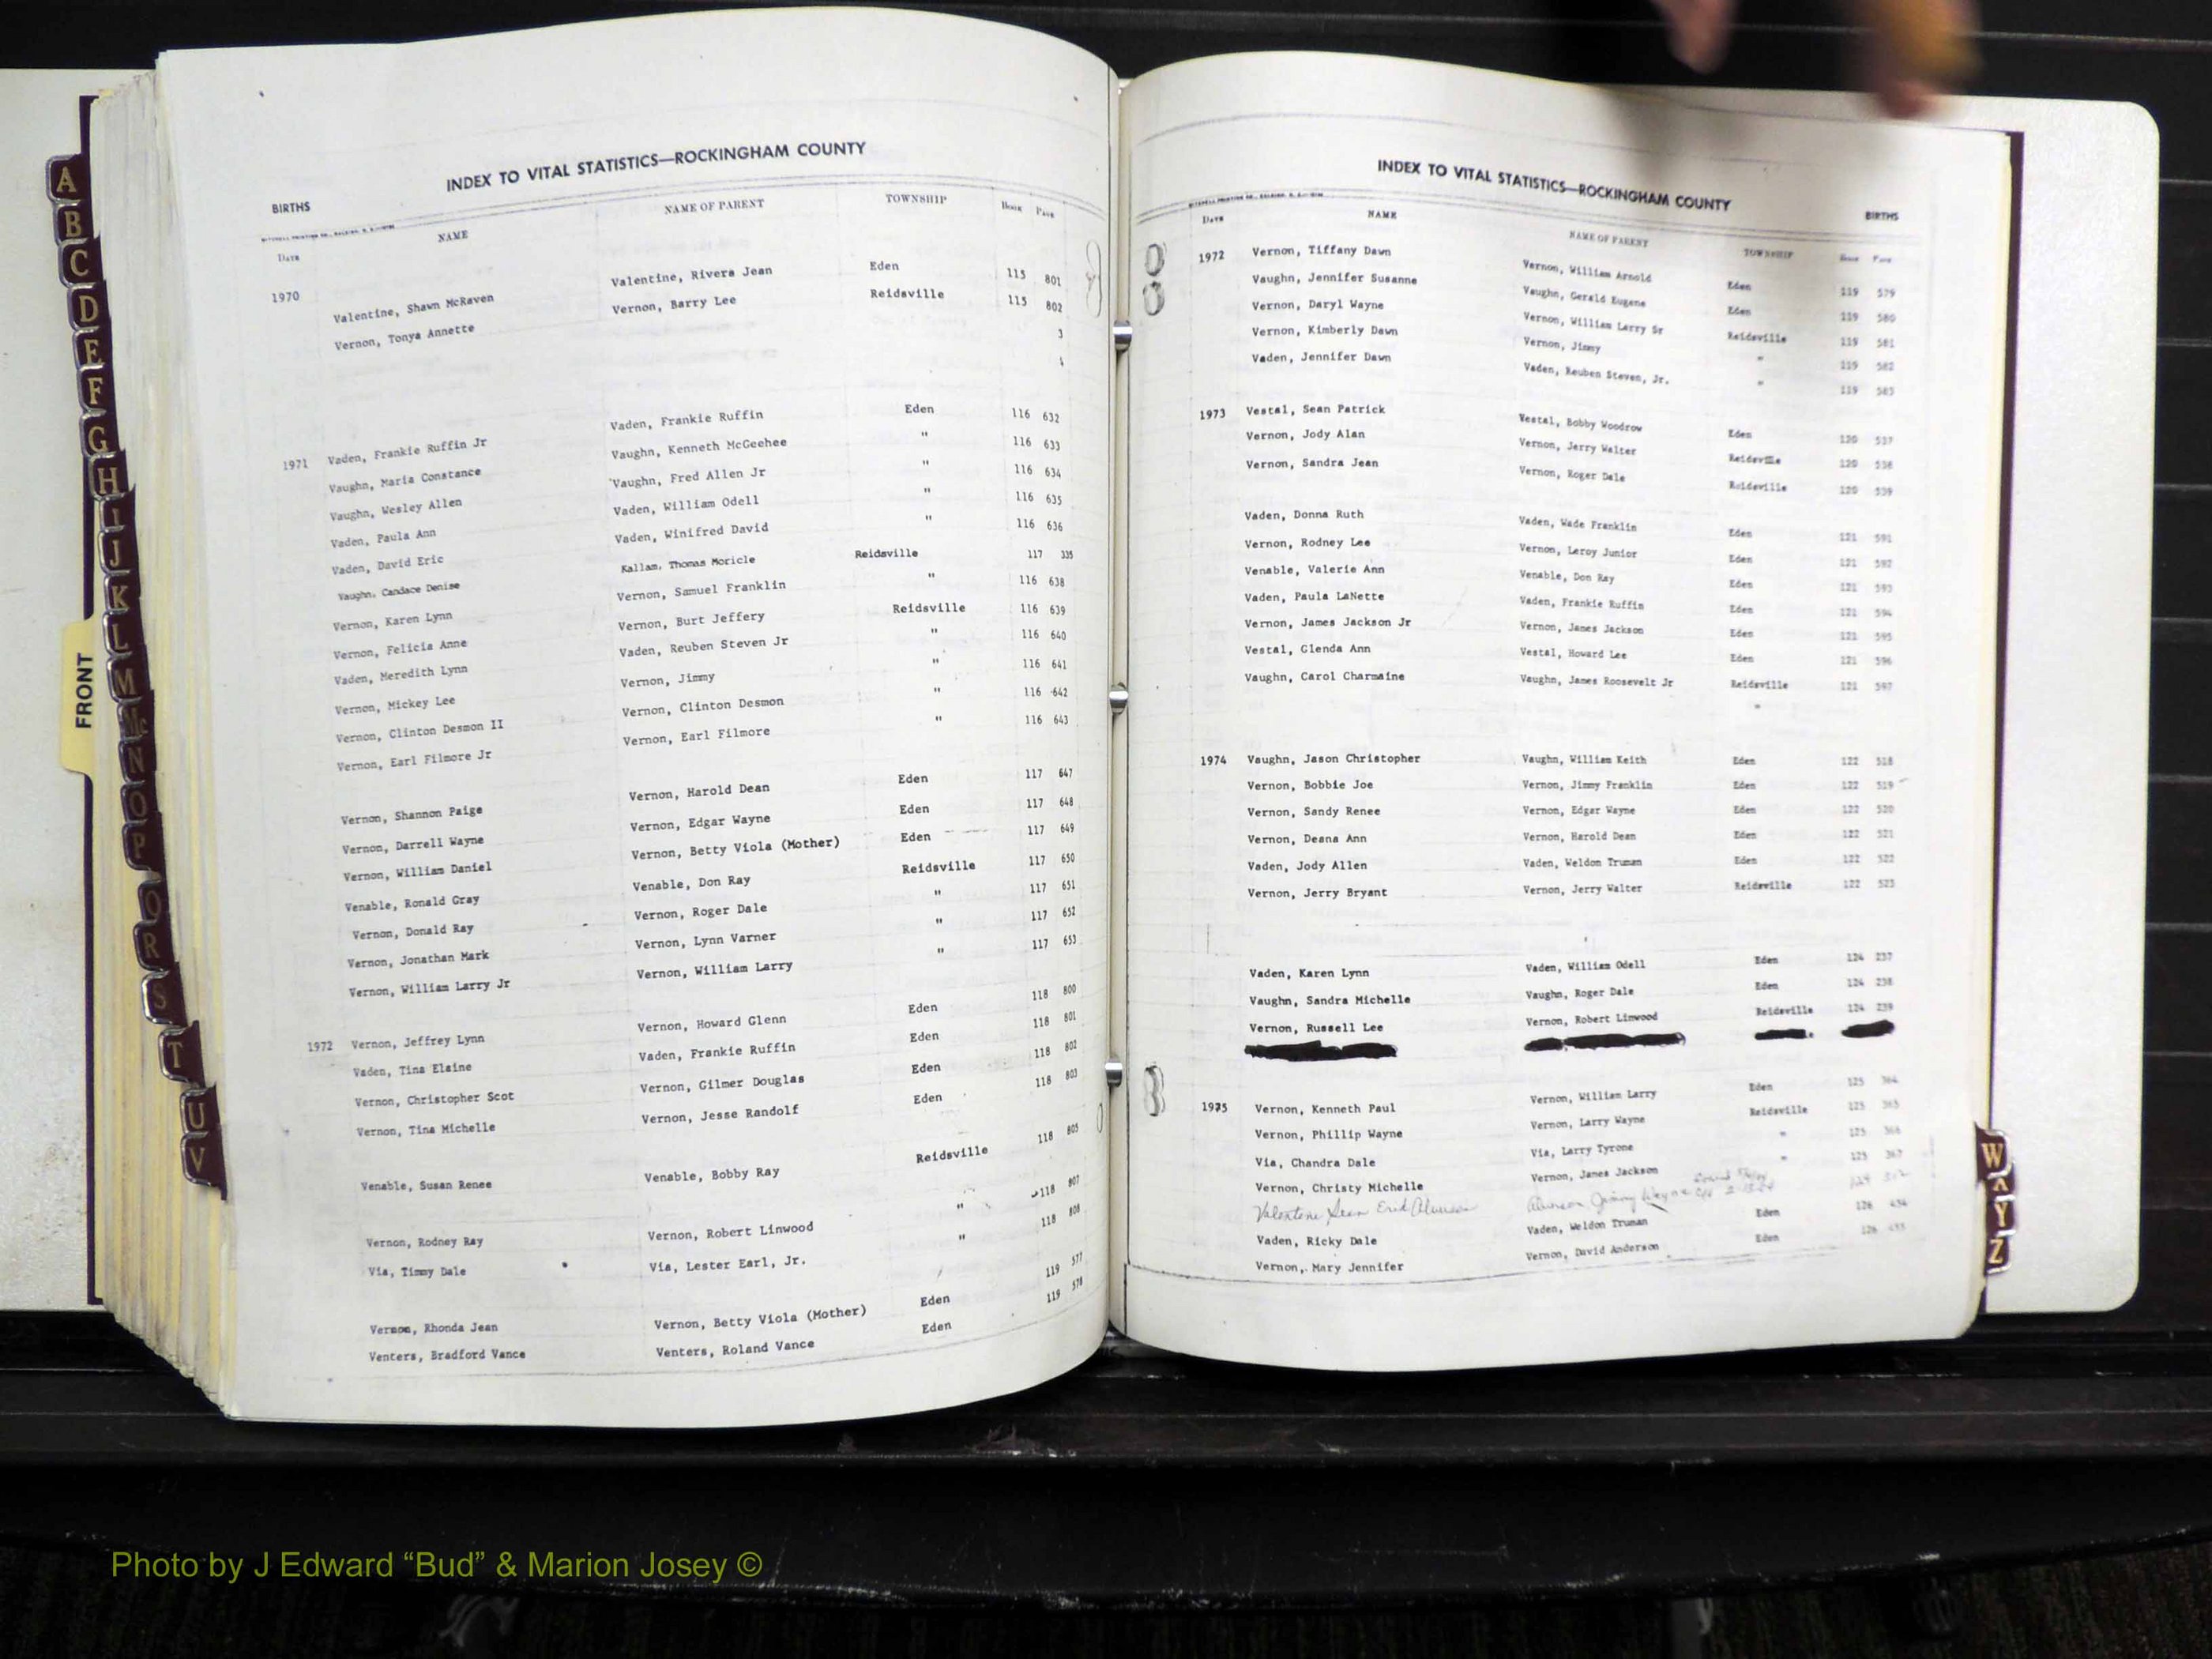 INDEX TO VITAL STATISTICS—ROCKINGHAM COUNTY
BIRTHS
DATE NAME NAME OF PARENT TOWNSHIP BOOK PAGE
1970 Valentine, Shawn McRaven Valentine, Rivers Jean Eden 115 801
Vernon, Tonya Annette Vernon, Barry Lee Reidsville 115 802
3
4
1971 Vaden, Frankie Ruffin Jr Vaden, Frankie Ruffin Eden 116 632
Vaughn, Maria Constance Vaughn, Kenneth McGeehee " 116 633
Vaughn, Wesley Allen Vaughn, Fred Allen Jr " 116 634
Vaden, Paula Ann Vaden, William Odell " 116 635
Vaden, David Eric Vaden, Winifred David " 116 636
Vaughn, Candace Denise Kallam, Thomas Moricle Reidsville 117 335
Vernon, Karen Lynn Vernon, Samuel Franklin " 116 638
Vernon, Felicia Anne Vernon, Burt Jeffery Reidsville 116 639
Vaden, Meredith Lynn Vaden, Reuben Steven Jr " 116 640
Vernon, Mickey Lee Vernon, Jimmy " 116 641
Vernon, Clinton Desmon II Vernon, Clinton Desmon " 116 642
Vernon, Earl Filmore Jr Vernon, Earl Filmore " 116 643
Vernon, Shannon Paige Vernon, Harold Dean Eden 117 647
Vernon, Darrell Wayne Vernon, Edgar Wayne Eden 117 648
Vernon, William Daniel Vernon, Betty Viola (Mother) Eden 117 649
Venable, Ronald Gray Venable, Don Ray Reidsville 117 650
Vernon, Donald Ray Vernon, Roger Dale " 117 651
Vernon, Jonathan Mark Vernon, Lynn Varner " 117 652
Vernon, William Larry Jr Vernon, William Larry " 117 653
1972 Vernon, Jeffrey Lynn Vernon, Howard Glenn Eden 118 800
Vaden, Tina Elaine Vaden, Frankie Ruffin Eden 118 801
Vernon, Christopher Scot Vernon, Gilmer Douglas Eden 118 802
Vernon, Tina Michelle Vernon, Jesse Randolf Eden 118 803
Venable, Susan Renee Venable, Bobby Ray Reidsville 118 805
Vernon, Rodney Ray Vernon, Robert Linwood " 118 807
Via, Timmy Dale Via, Lester Earl, Jr. " 118 808
Vernon, Rhonda Jean Vernon, Betty Viola (Mother) Eden 119 577
Venters, Bradford Vance Venters, Roland Vance Eden 119 578
INDEX TO VITAL STATISTICS—ROCKINGHAM COUNTY
BIRTHS
DATE NAME NAME OF PARENT TOWNSHIP BOOK PAGE
1972 Vernon, Tiffany Dawn Vernon, William Arnold Eden 119 579
Vaughn, Jennifer Susanne Vaughn, Gerald Eugene Eden 119 580
Vernon, Daryl Wayne Vernon, William Larry Sr Reidsville 119 581
Vernon, Kimberly Dawn Vernon, Jimmy " 119 582
Vaden, Jennifer Dawn Vaden, Reuben Steven, Jr. " 119 583
1973 Vestal, Sean Patrick Vestal, Bobby Woodrow Eden 120 537
Vernon, Jody Alan Vernon, Jerry Walter Reidsville 120 538
Vernon, Sandra Jean Vernon, Roger Dale Reidsville 120 539
Vaden, Donna Ruth Vaden, Wade Franklin Eden 121 591
Vernon, Rodney Lee Vernon, Leroy Junior Eden 121 592
Venable, Valerie Ann Venable, Don Ray Eden 121 593
Vaden, Paula LaNette Vaden, Frankie Ruffin Eden 121 594
Vernon, James Jackson Jr Vernon, James Jackson Eden 121 595
Vestal, Glenda Ann Vestal, Howard Lee Eden 121 596
Vaughn, Carol Charmaine Vaughn, James Roosevelt Jr Reidsville 121 597
"
1974 Vaughn, Jason Christopher Vaughn, William Keith Eden 122 518
Vernon, Bobbie Joe Vernon, Jimmy Franklin Eden 122 519
Vernon, Sandy Renee Vernon, Edgar Wayne Eden 122 520
Vernon, Deana Ann Vernon, Harold Dean Eden 122 521
Vaden, Jody Allen Vaden, Weldon Truman Eden 122 522
Vernon, Jerry Bryant Vernon, Jerry Walter Reidsville 122 523
Vaden, Karen Lynn Vaden, William Odell Eden 124 237
Vaughn, Sandra Michelle Vaughn, Roger Dale Eden 124 238
Vernon, Russell Lee Vernon, Robert Linwood Reidsville 124 239
1975 Vernon, Kenneth Paul Vernon, William Larry Eden 125 364
Vernon, Phillip Wayne Vernon, Larry Wayne Reidsville 125 365
Via, Chandra Dale Via, Larry Tyrone " 125 366
Vernon, Christy Michelle Vernon, James Jackson " 125 367
Valentine Sean Jimmy Wayne
Vaden, Ricky Dale Vaden, Weldon Truman Eden 126 454
Vernon, Mary Jennifer Vernon, David Anderson Eden 126 455
FRONT
A
B
C
D
E
F
G
H
I
J
K
L
M
Mc
N
O
P
Q
R
S
T
U
V
W
X
Y
Z
Photo by J Edward “Bud” & Marion Josey ©